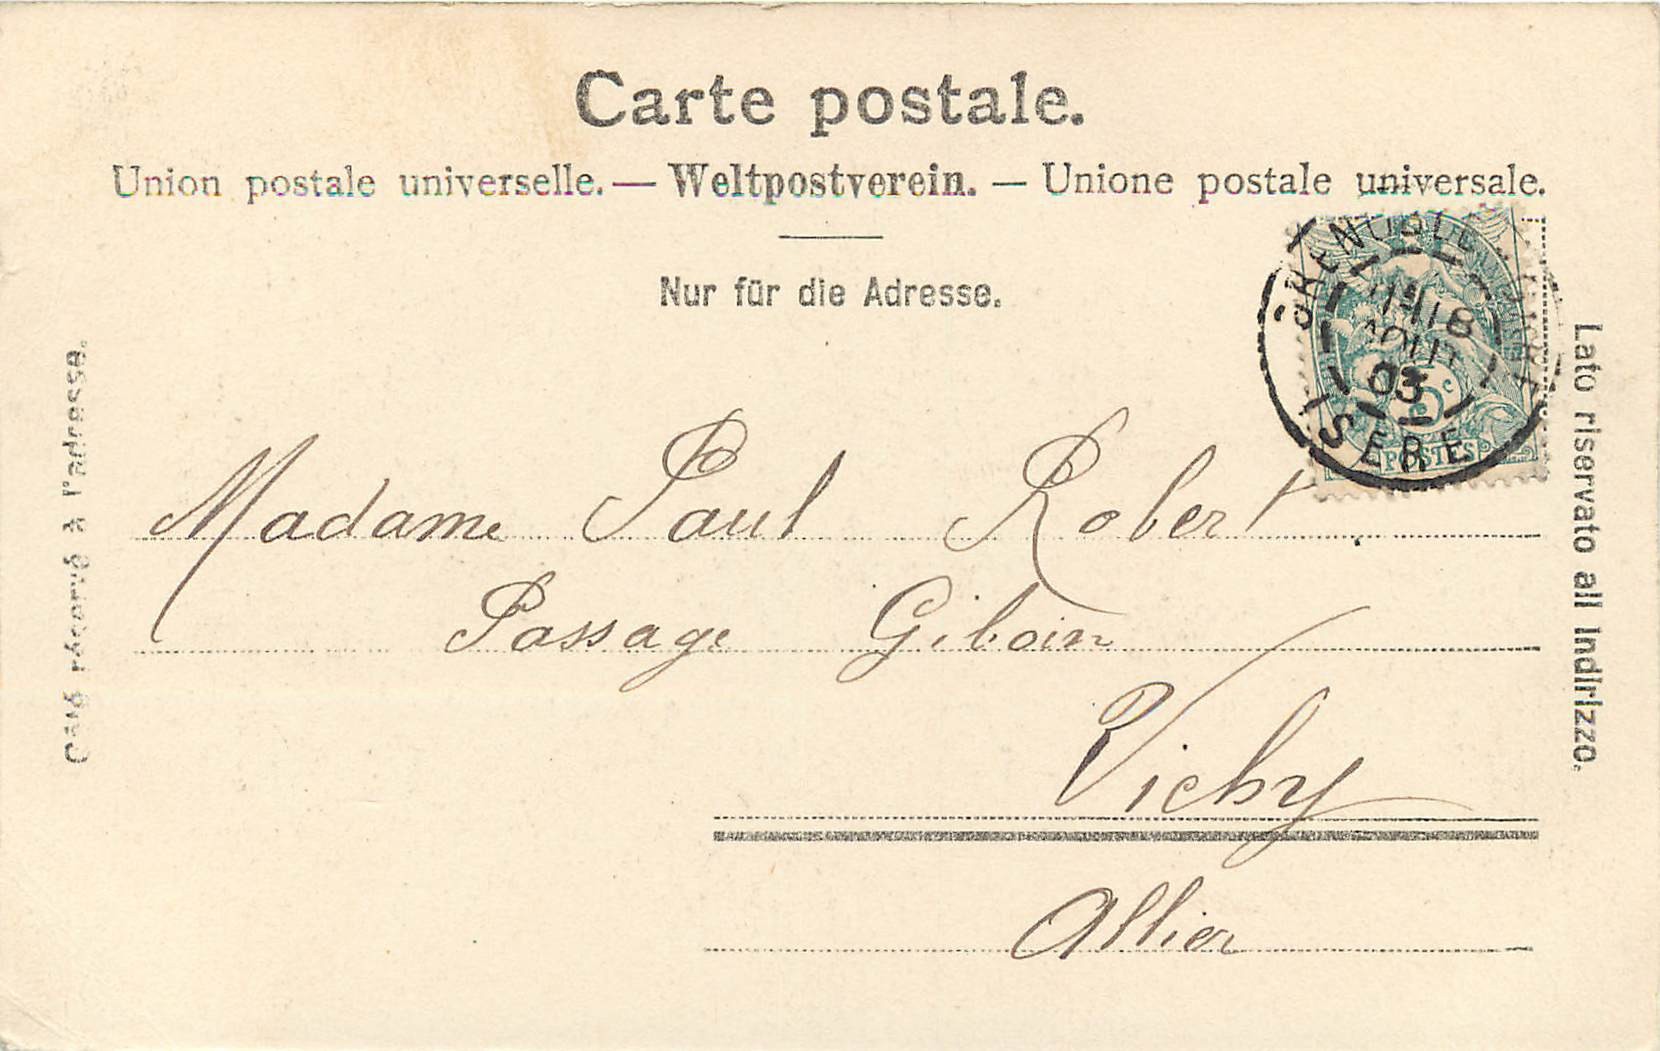 Carte postale.
Union postale universelle. — Weltpostverein. — Unione postale universale.
Nur für die Adresse.
Côté réservé à l'adresse.
Lato riservato all Indirizzo.
GRENOBLE
18
AOUT
03
ISERE
5c
POSTES
Madame Paul Robert
Passage Giboin
Vichy
Allier